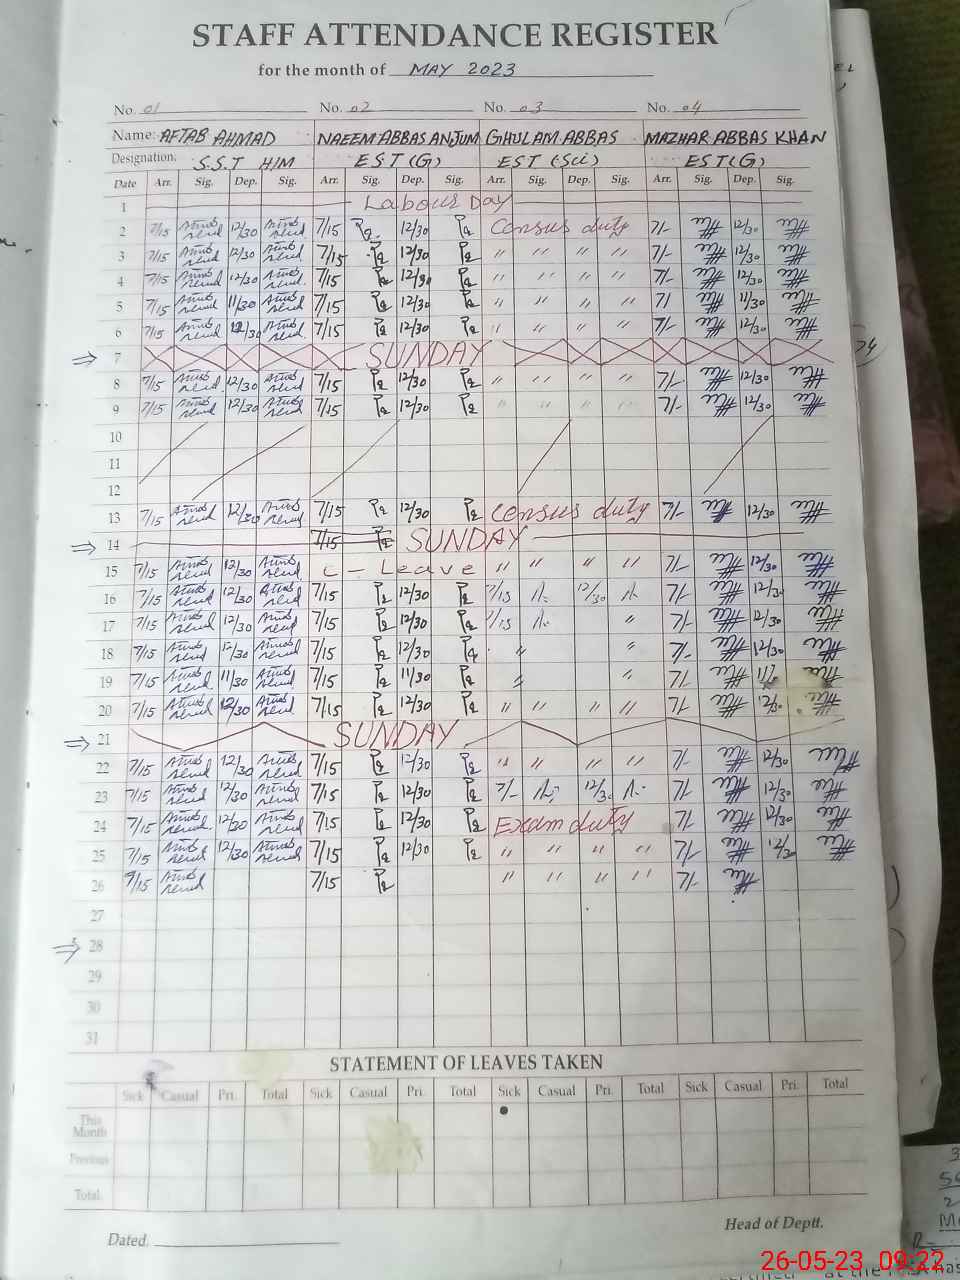 STAFF ATTENDANCE REGISTER
for the month of MAY 2023
No. 01 No. 02 No. 03 No. 04
Name: AFTAB AHMAD NAEEM ABBAS ANJUM GHULAM ABBAS MAZHAR ABBAS KHAN
Designation: S.S.T H/M EST (G) EST (Sci) EST (G)
Date Arr. Sig. Dep. Sig. Arr. Sig. Dep. Sig. Arr. Sig. Dep. Sig. Arr. Sig. Dep. Sig.
1 Labour Day
2 7/15 12/30 7/15 12/30 Census duty 7/- 12/30
3 7/15 12/30 7/15 12/30 " " " " 7/- 12/30
4 7/15 12/30 7/15 12/30 " " " " 7/- 12/30
5 7/15 11/30 7/15 12/30 " " " " 7/- 11/30
6 7/15 12/30 7/15 12/30 " " " " 7/- 12/30
⇒ 7 SUNDAY
8 7/15 12/30 7/15 12/30 " " " " 7/- 12/30
9 7/15 12/30 7/15 12/30 " " " " 7/- 12/30
10
11
12
13 7/15 12/30 7/15 12/30 Census duty 7/- 12/30
⇒ 14 7/15 SUNDAY
15 7/15 12/30 C - Leave " " " " 7/- 12/30
16 7/15 12/30 7/15 12/30 7/15 12/30 7/- 12/30
17 7/15 12/30 7/15 12/30 7/15 " 7/- 12/30
18 7/15 12/30 7/15 12/30 " " 7/- 12/30
19 7/15 11/30 7/15 11/30 " " 7/-
20 7/15 12/30 7/15 12/30 " " " " 7/- 12/30
⇒ 21 SUNDAY
22 7/15 12/30 7/15 12/30 " " " " 7/- 12/30
23 7/15 12/30 7/15 12/30 7/- 12/30 7/- 12/30
24 7/15 12/30 7/15 12/30 Exam duty 7/- 12/30
25 7/15 12/30 7/15 12/30 " " " " 7/- 12/30
26 7/15 7/15 " " " " 7/-
27
⇒ 28
29
30
31
STATEMENT OF LEAVES TAKEN
Sick Casual Pri. Total Sick Casual Pri. Total Sick Casual Pri. Total Sick Casual Pri. Total
This Month
Previous
Total
Dated. Head of Deptt.
26-05-23 09:22